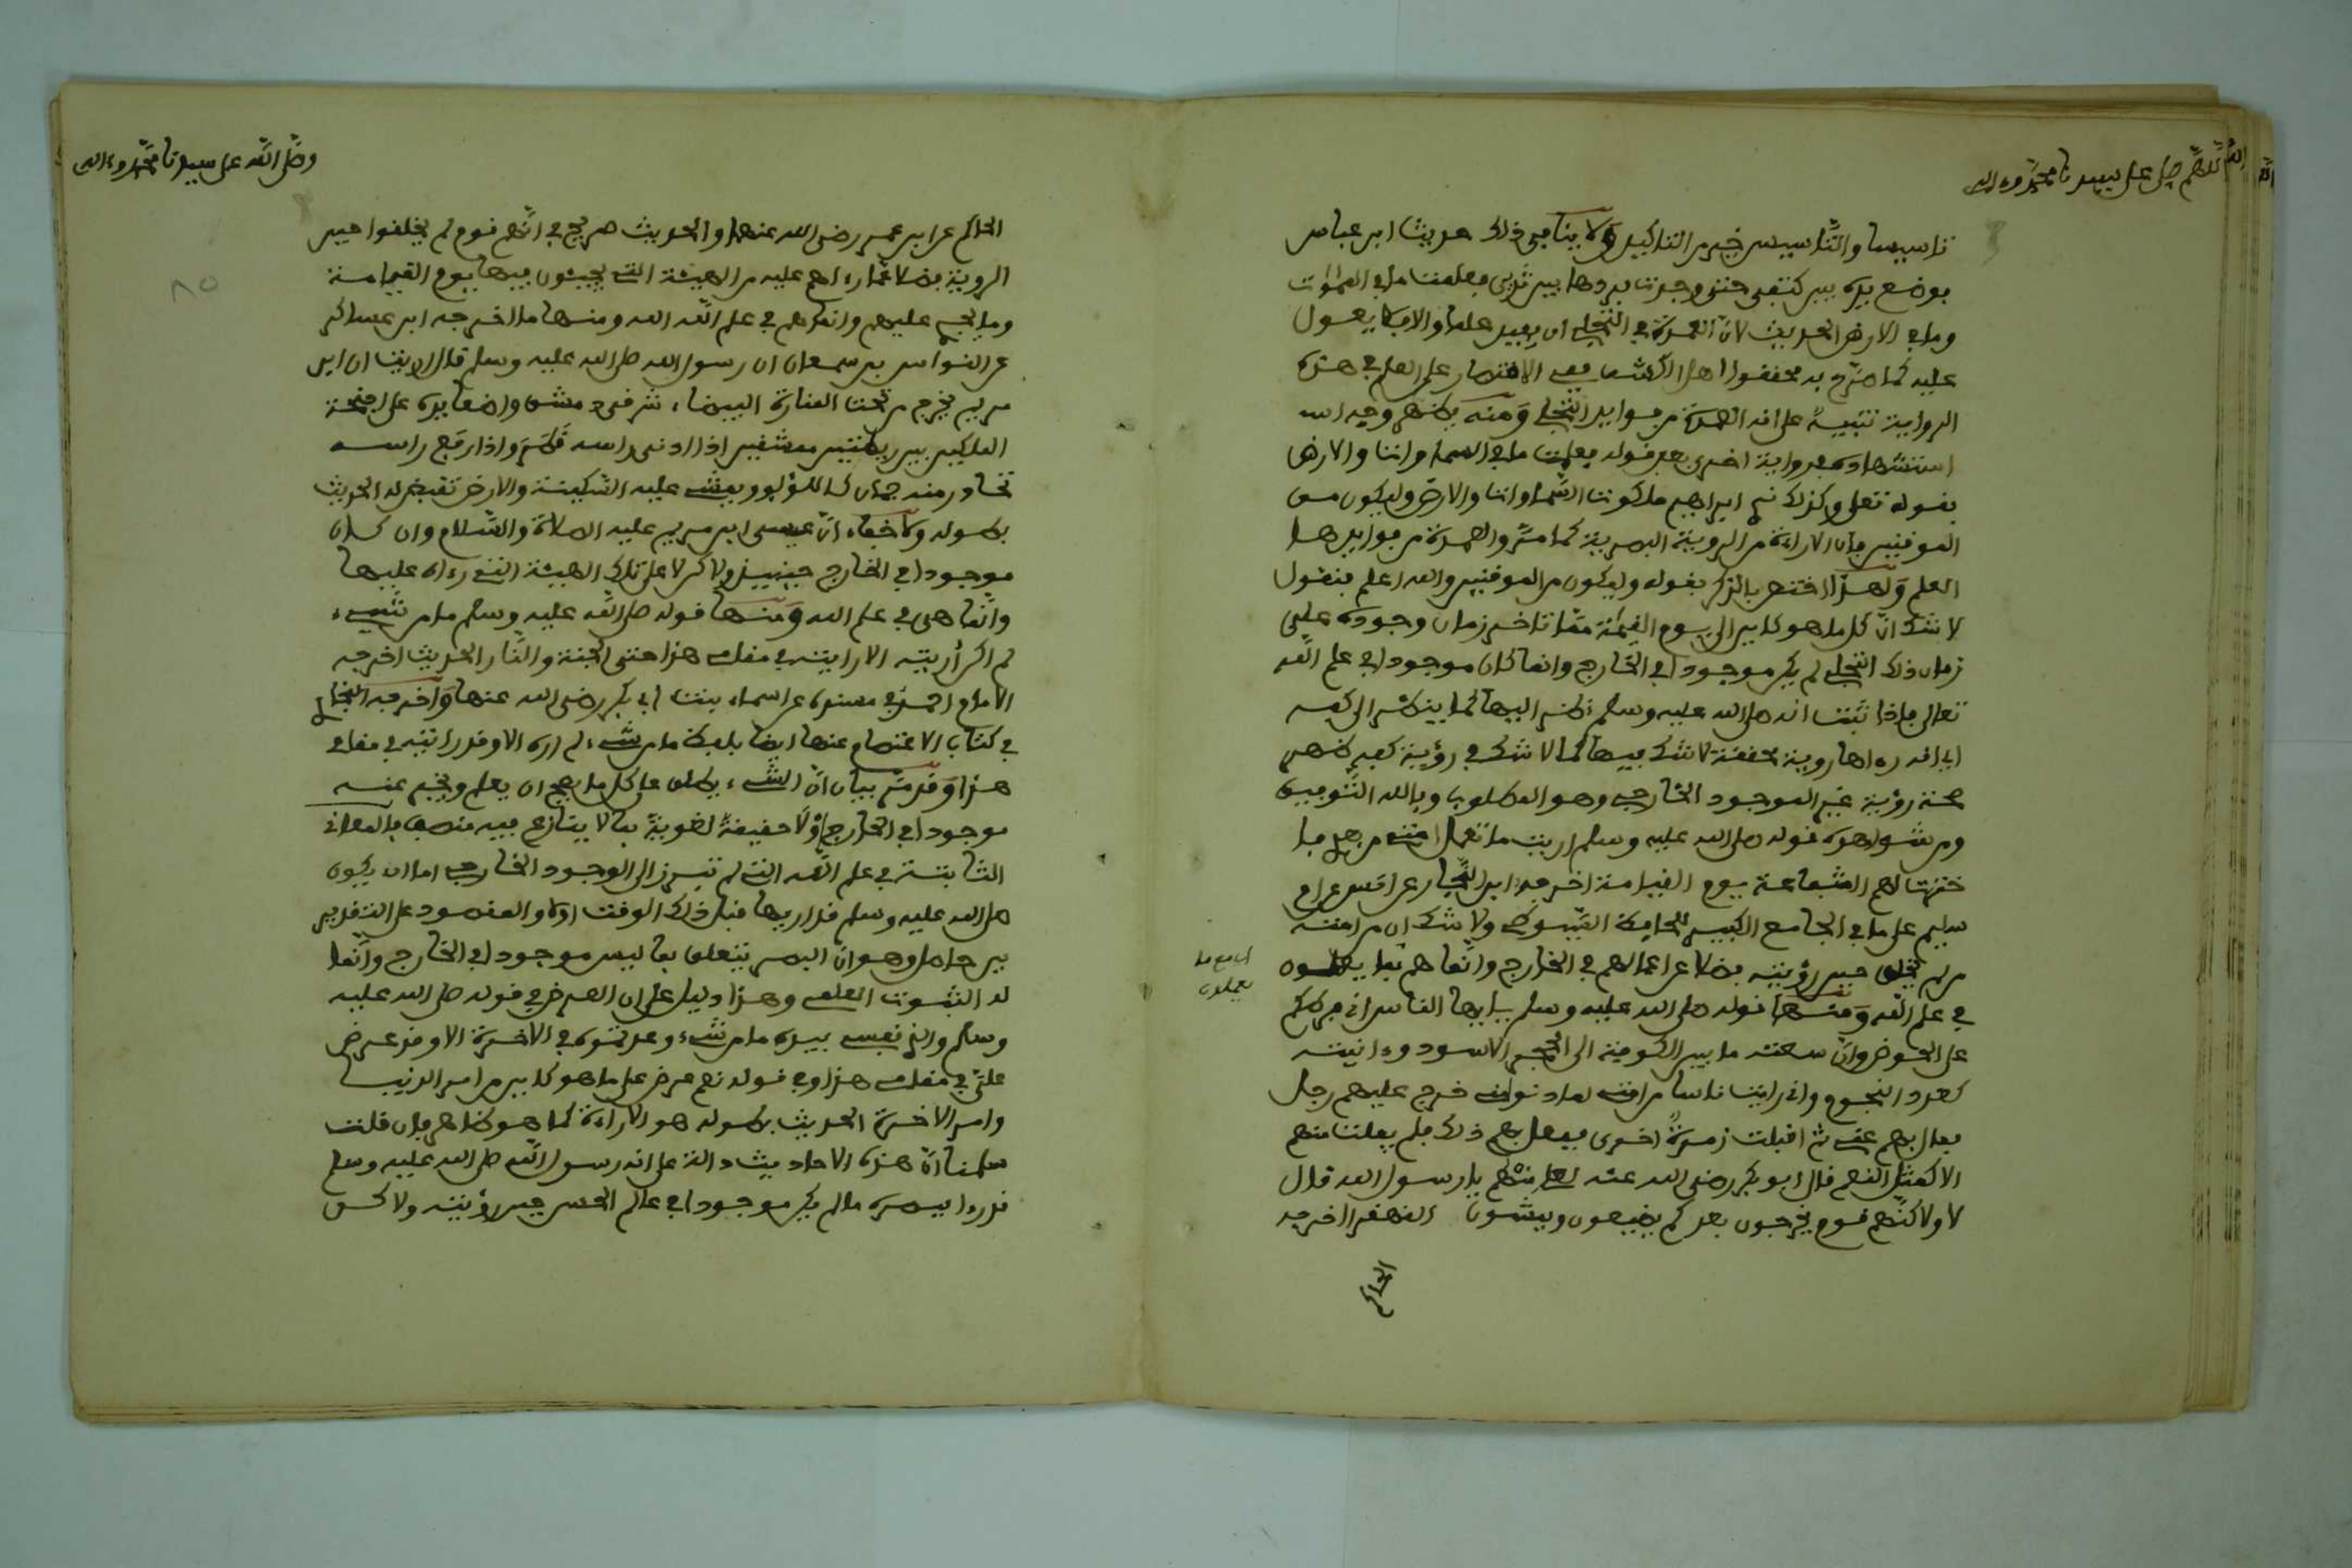 اللهم صل على سيدنا محمد وءاله
تاسيسا والتاسيس خير من التاكيد ولا ينافي ذلك حديث ابن عباس
فوضع يده بين كتفي حتى وجدت بردها بين ثديي فعلمت ما في السموات
وما في الارض الحديث لان العمدة في التجلي ان يفيد علما والا فلا يعول
عليه كما صرح به محققوا اهل الكشف ففي الاقتصار على العلم في هذه
الرواية تنبيه على انه العمدة من فوايد التجلي ومنه يظهر وجه
استشهاده في رواية اخرى بعد قوله فعلمت ما في السماوات والارض
بقوله تعلى وكذلك نري ابراهيم ملكوت السماوات والارض وليكون من
الموقنين فان الاراءة من الروية البصرية كما مر والعمدة من فوايدها
العلم ولهذا اختص بالذكر بقوله وليكون من الموقنين والله اعلم فنقول
لا شك ان كل ما هو كاين الى يوم القيمة مما تاخر زمان وجوده على
زمان ذلك التجلي لم يكن موجودا في الخارج وانما كان موجودا في علم الله
تعالى فاذا ثبت انه صلى الله عليه وسلم نظر اليها كما ينظر الى كفه
اي انه رءاها روية محققة لا شك فيها كما لا شك في رؤية كفه ظهر
صحة رؤية غير الموجود الخارجي وهو المطلوب وبالله التوفيق
ومن شواهده قوله صلى الله عليه وسلم اريت ما تعمل امتي من بعدي فا
خترت لهم الشفاعة يوم القيامة اخرجه ابن النجار عن انس عن ام
سليم على ما في الجامع الكبير للحافظ السيوطي ولا شك ان من امته
من لم يخلق حين رؤيته فضلا عن اعمالهم في الخارج وانما هم بما يعملون
في علم الله ومنها قوله صلى الله عليه وسلم يا ايها الناس اني فرطكم
على الحوض وان سعته ما بين الكوفة الى الحجر الاسود وءانيته
كعدد النجوم واني رايت ناسا من امتي لما دنوا مني خرج عليهم رجل
فمال بهم عني ثم اقبلت زمرة اخرى ففعل بهم ذلك فلم يفلت منهم
الا كمثل النعم فقال ابو بكر رضي الله عنه لعلي منهم يا رسول الله قال
لا ولاكنهم قوم يخرجون بعدكم يضيعون ويمشون القهقرا اخرجه
الحاكم
يعملون
وصلى الله على سيدنا محمد وءاله
الحاكم عن ابن عمر رضي الله عنهما والحديث صريح في انهم قوم لم يخلقوا حين
الروية فضلا عما رءاهم عليه من الهيئة التي يجيئون فيها يوم القيامة
وما يجري عليهم وانما هم في علم الله الله ومنها ما اخرجه ابن عساكر
عن النواس بن سمعان ان رسول الله صلى الله عليه وسلم قال اريت ان ابن
مريم يخرج من تحت المنارة البيضاء شرقي دمشق واضعا يده على اجنحة
الملكين بين ريطتين ممشقين اذا ادنى راسه قطر واذا رفع راسه
تحادر منه جمان كاللؤلؤ ويمشي عليه السكينة والارض تقبض له الحديث
بطوله ولا خفاء ان عيسى ابن مريم عليه الصلاة والسلام وان كان
موجودا في الخارج حينيذ ولاكن لا على تلك الهيئة التي رءاه عليها
وانما هي في علم الله ومنها قوله صلى الله عليه وسلم ما من شيء
لم اكن أريته الا رايته في مقامي هذا حتى الجنة والنار الحديث اخرجه
الامام احمد في مسنده عن اسماء بنت ابي بكر رضي الله عنها واخرجه البخاري
في كتاب الاعتصام عنها ايضا بلفظ ما من شيء لم اره الا وقد رايته في مقامي
هذا وقد مر بيان ان الشيء يطلق على كل ما يصح ان يعلم ويخبر عنه
موجودا في الخارج أو لا حقيقة لغوية بما لا ينازع فيه منصف فالمعاني
الثابتة في علم الله التي لم تبرز الى الوجود الخارجي اما ان يكون
صلى الله عليه وسلم قد اريها قبل ذلك الوقت او لا والمقصود على التقديرين
حاصل وهو ان البصر يتعلق بما ليس موجودا في الخارج وانما
له الثبوت العلمي وهذا دليل على ان العرض في قوله صلى الله عليه
وسلم والذي نفسي بيده ما من شيء وعدتموه في الاخرة الا وقد عرض
علي في مقامي هذا وفي قوله نعم عرض علي ما هو كاين من امر الدنيا
وامر الاخرة الحديث بطوله هو الاراءة كما هو ظاهر فان قلت
سلمنا ان هذه الاحاديث دالة على انه رسول الله صلى الله عليه وسلم
قد رءا ببصره ما لم يكن موجودا في عالم الحس حين رؤيته ولاكن